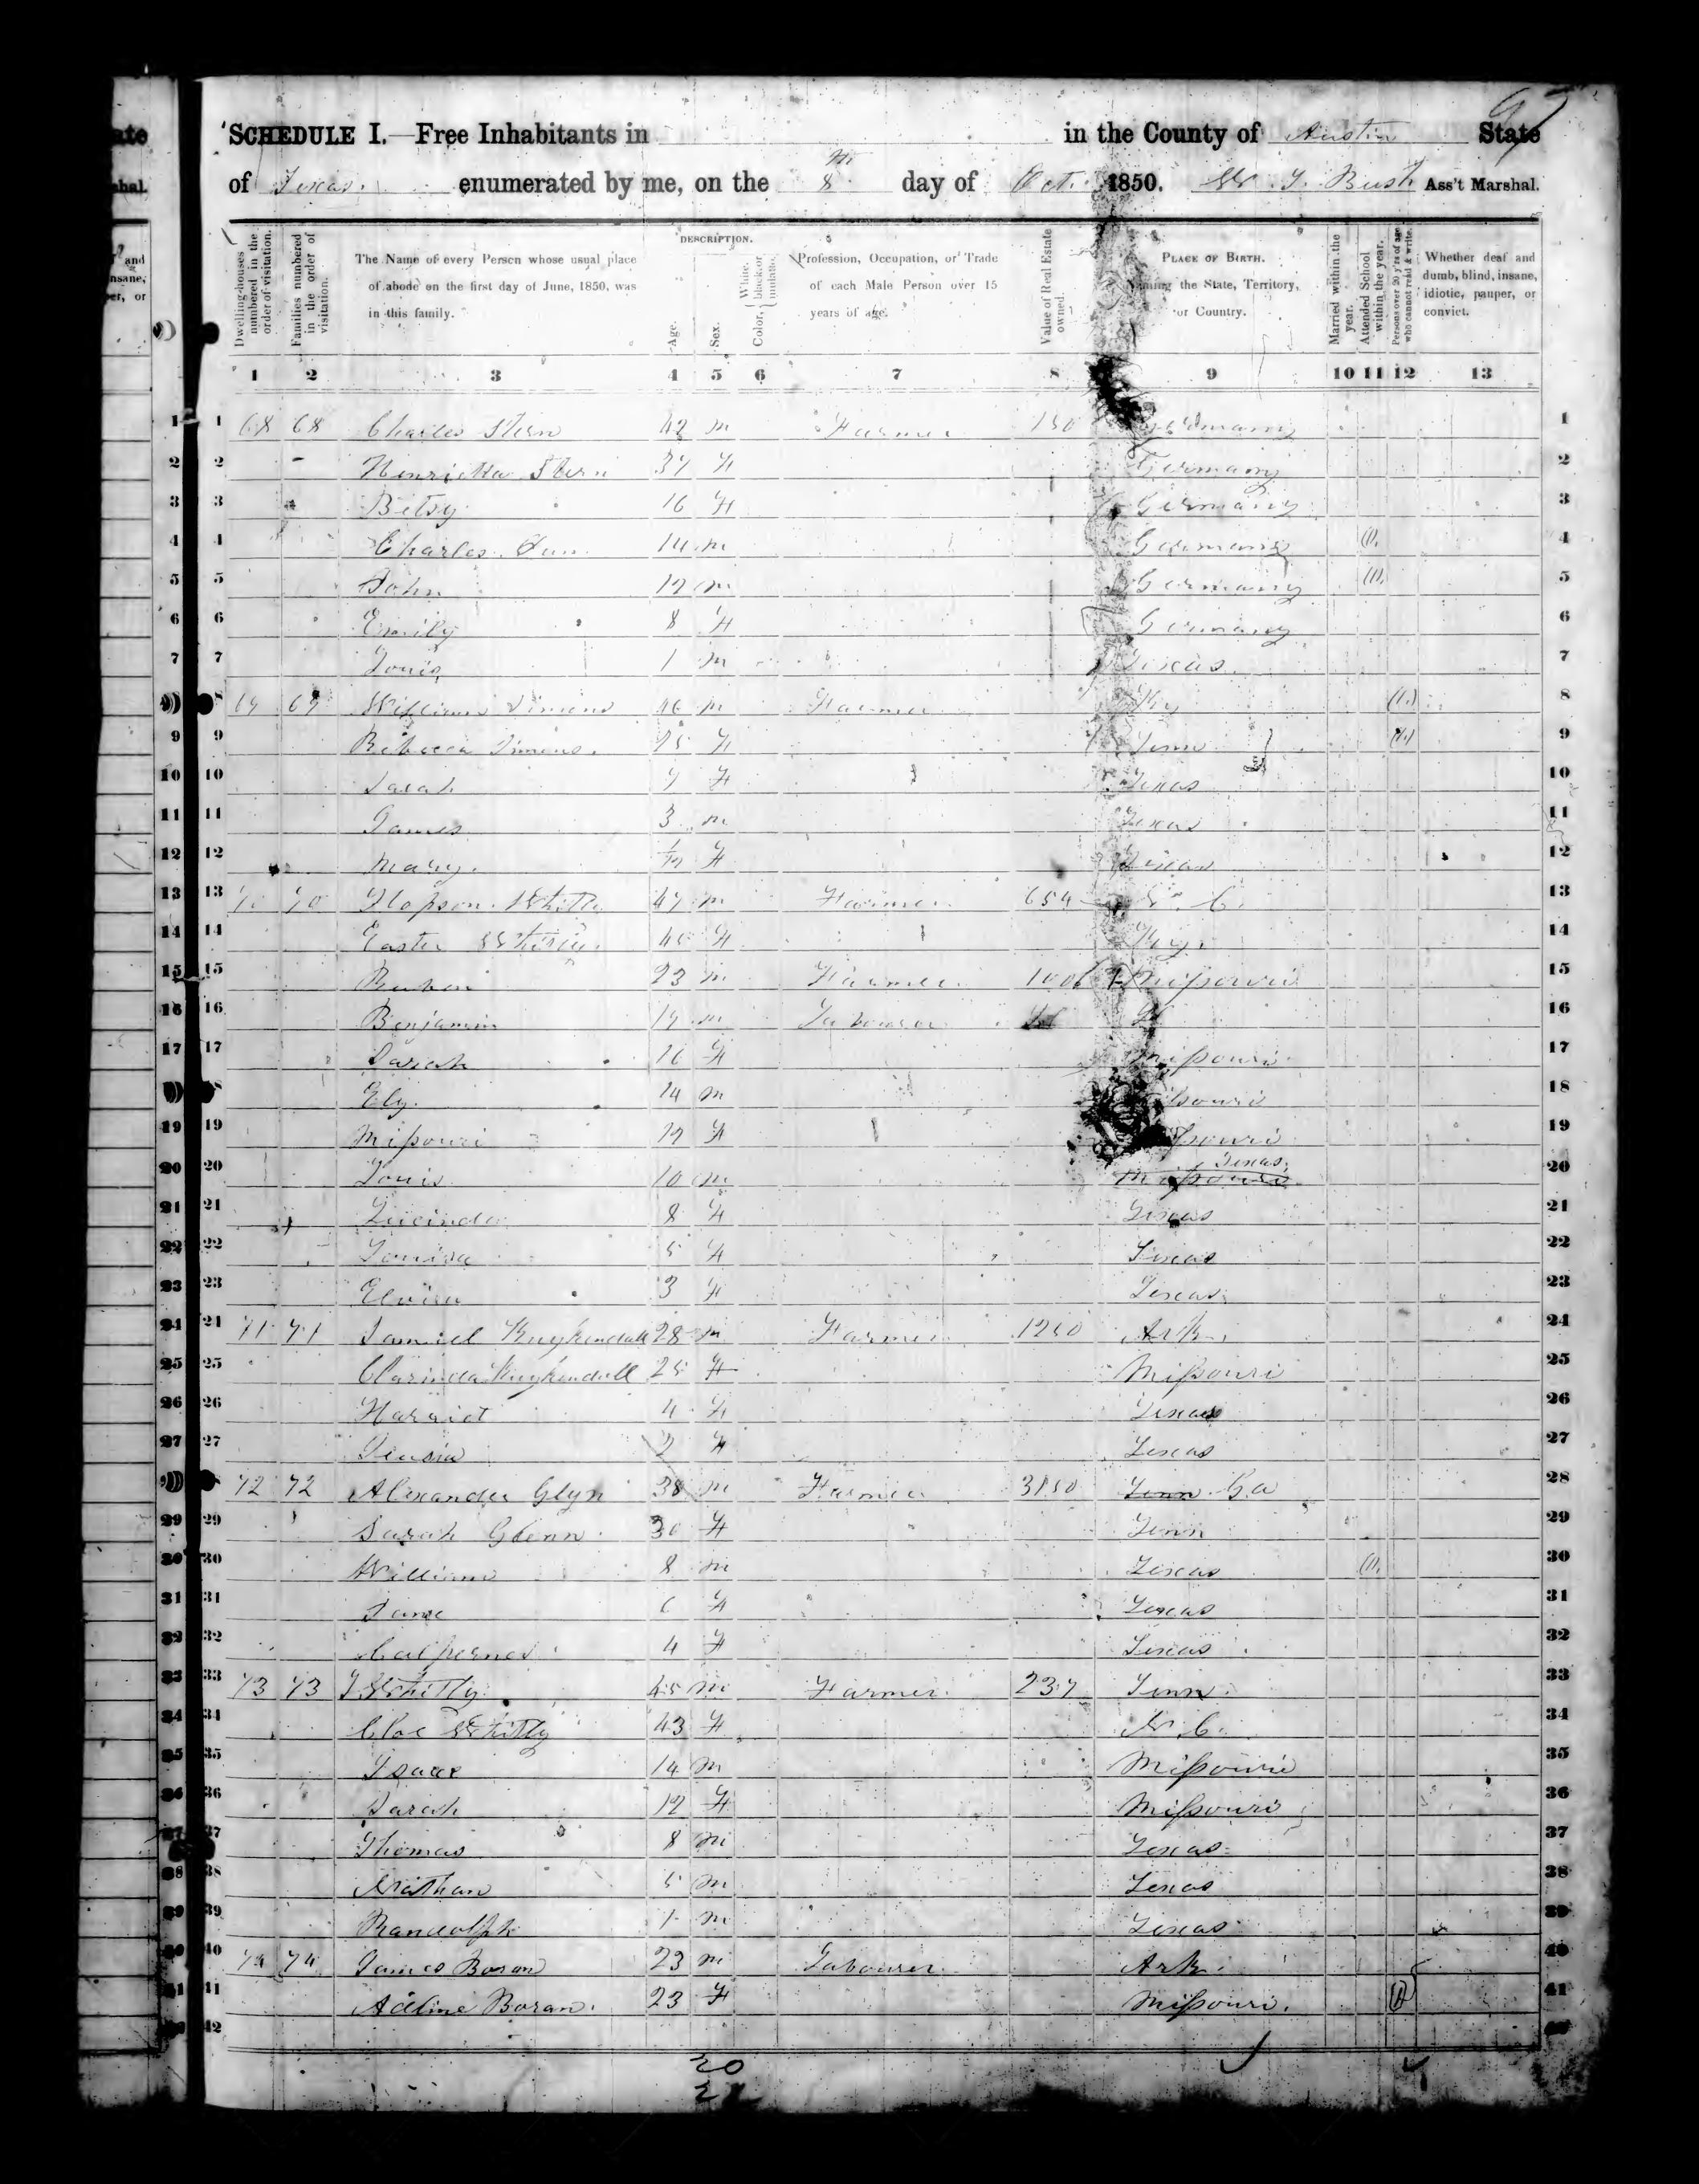 97
SCHEDULE I.—Free Inhabitants in in the County of Austin State
of Texas. enumerated by me, on the 8th day of Oct. 1850. W. J. Bush Ass't Marshal.
Dwelling-houses numbered in the order of visitation.
Families numbered in the order of visitation.
The Name of every Person whose usual place of abode on the first day of June, 1850, was in this family.
DESCRIPTION.
Age.
Sex.
Color, { White, black, or mulatto.
Profession, Occupation, or Trade of each Male Person over 15 years of age.
Value of Real Estate owned.
PLACE OF BIRTH. Naming the State, Territory, or Country.
Married within the year.
Attended School within the year.
Persons over 20 y'rs of age who cannot read & write.
Whether deaf and dumb, blind, insane, idiotic, pauper, or convict.
1 2 3 4 5 6 7 8 9 10 11 12 13
1 68 68 Charles Stern 42 m Farmer 150 Germany 1
2 Henrietta Stern 37 F Germany 2
3 Betsy 16 F Germany 3
4 Charles Jun. 14 m Germany (1) 4
5 John 12 m Germany (1) 5
6 Emily 8 F Germany 6
7 Louis 1 m Texas 7
8 69 69 William Simons 46 m Farmer Ky (1) 8
9 Rebecca Simons. 25 F Tenn (1) 9
10 Sarah 7 F Texas 10
11 James 3 m Texas 11
12 Mary. F Texas 12
13 70 70 Hopson Whitly 47 m Farmer 654 C. 13
14 Easter Whitly. 45 F Ky. 14
15 Reuben 23 m Farmer Missouri 15
16 Benjamin 19 m Labourer 16
17 Sarah 16 F Missouri 17
18 Ely. 14 m Missouri 18
19 Missouri 12 F Missouri 19
20 Louis 10 m Missouri Texas 20
21 Lucinda 8 F Texas 21
22 Louisa 5 F Texas 22
23 Elvira 3 F Texas 23
24 71 71 Samuel Kuykendall 28 m Farmer 1250 Ark. 24
25 Clarinda Kuykendall 25 F Missouri 25
26 Harriet 4 F Texas 26
27 2 F Texas 27
28 72 72 Alexander Glyn 38 m Farmer 3150 Tenn Ga 28
29 Sarah Glenn 30 F Tenn 29
30 William 8 m Texas (1) 30
31 Jane 6 F Texas 31
32 4 F Texas 32
33 73 73 J Whitly 45 m Farmer. 237 Tenn. 33
34 Cloe Whitly 43 F N. C. 34
35 Isaac 14 m Missouri 35
36 Sarah 12 F Missouri 36
37 Thomas 8 m Texas 37
38 Nathan 5 m Texas 38
39 Randolph 1 m Texas 39
40 74 74 James Boran 23 m Labourer. Ark. 40
41 Adline Boran. 23 F Missouri. (1) 41
42
20